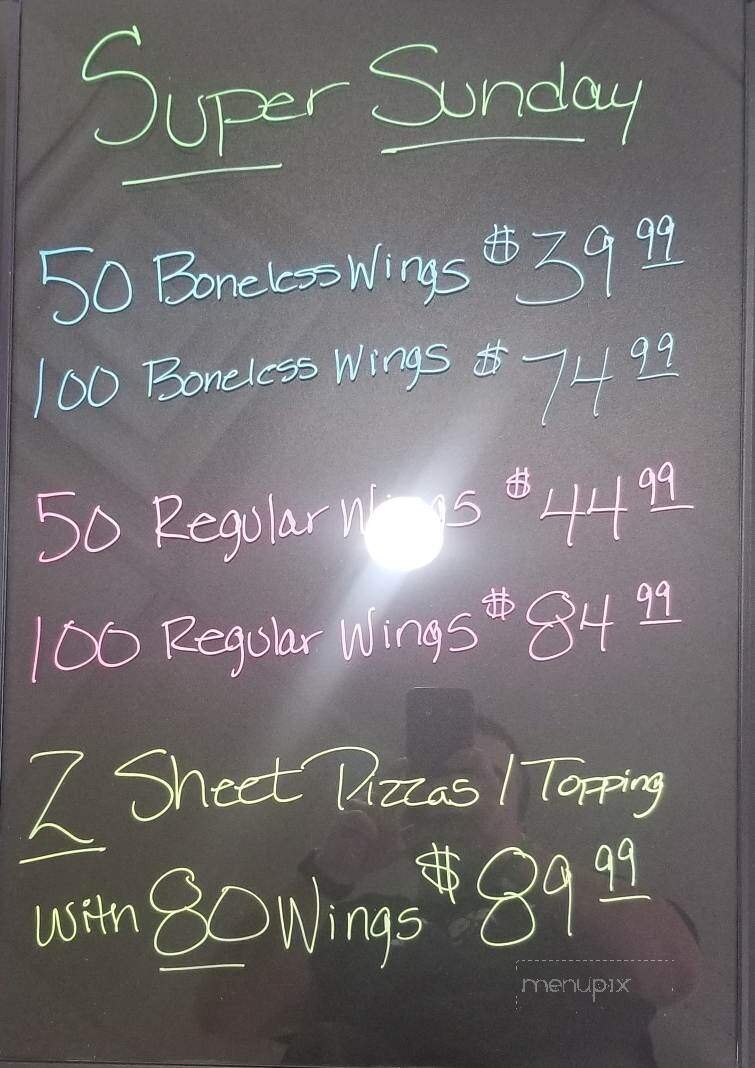 Super Sunday
50 Boneless Wings $39.99
100 Boneless Wings $74.99
50 Regular $44.99
100 Regular Wings $84.99
2 Sheet Pizzas 1 Topping
with 80 Wings $89.99
menupix